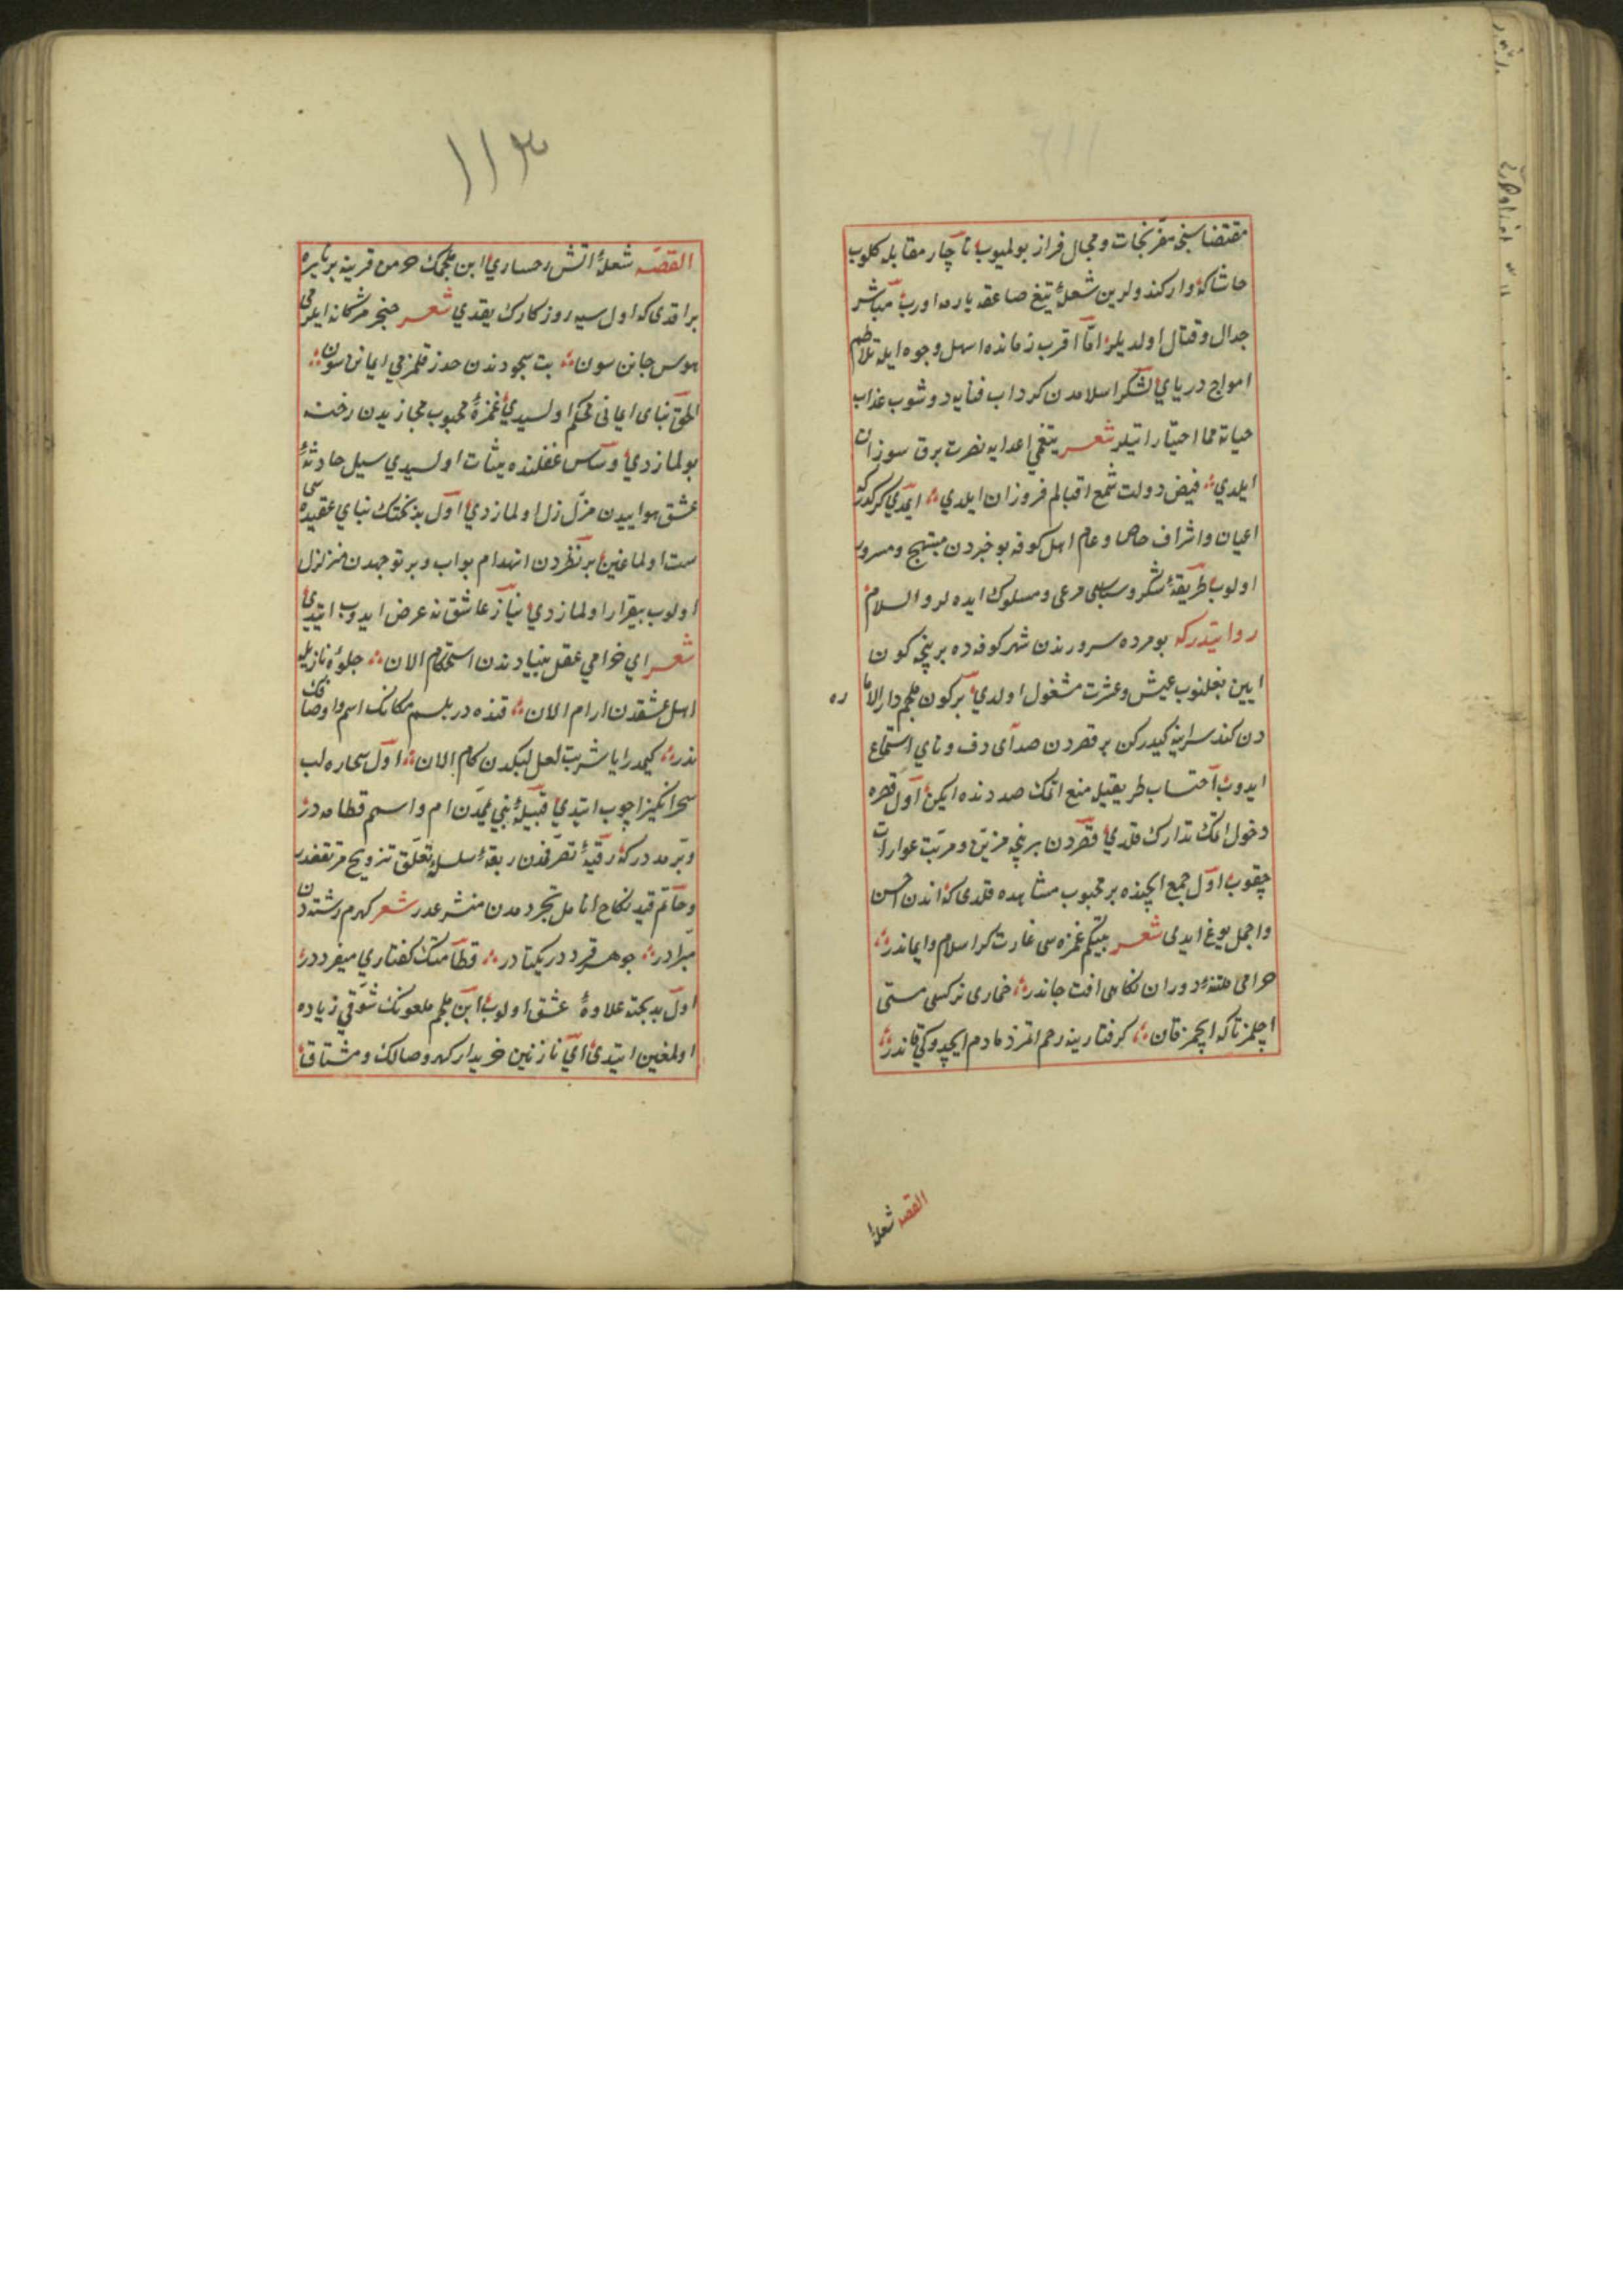 مقتضاسنجه مفر نجات و مجال فرار بولميوب ناچار مقابله كلوب
حاشاكه وار كندولرين شعلهٔ تيغ صاعقه باره اوروب مباشر
جدال و قتال اولديلر اما اقرب زمانده اسهل وجوه ايله تلاطم
امواج درياي لشكر اسلامدن كرداب فنايه دوشوب عذاب
ممات اختيار اتيلر شعر تيغمي اعدايه نصرت برق سوزان
ايلدي فيض دولت شمع اقبالم فروزان ايلدي ايمدي كركدركه
اعيان و اشراف خاص و عام اهل كوفه بو خبردن مبتهج و مسرور
اولوب طريقهٔ شكر و سپاسى مرعى و مسلوك ايده لر والسلام
روايتدركه بو مرده سرورندن شهر كوفه ده بر نيچه كون
ايين بغلنوب عيش و عشرت مشغول اولدي بر كون ملجم دار الاما
ره
دن كند سراينه كيدركن بر قصردن صداى دف و ناي استماع
ايدوب احتساب طريقيله منع اتمك صددنده ايكن اول قصره
دخول اتمك تدارك قلدي قصردن بر نيچه مزين و مرتب عورات
چقوب اول جمع ايچنده بر محبوب مشاهده قلدى كه اندن احسن
و اجمل يوغ ايدى شعر بتيكم غمزه سى غارتكر اسلام و ايماندر
حرامى فتنهٔ دوران نكاهى افت جاندر خمارى نركسى مستى
اچلمز تاكه ايچمز قان كرفتارينه رحم اتمز دمادم ايچدوكي قاندر
القصه شعلهٔ
١١٣
القصه شعلهٔ اتش رخساري ابن ملجمك خرمن قرينه بر نايره
براقدى كه اول سيه روزكارك يقدي شعر خنجر مژكانه ايلر مى
هوس جانن سون بت سجودندن حذر قلمز مى ايمانن سون
الحق بناى ايمانى محكم اولسيدي غمزهٔ محبوب مجازيدن رخنه
بولمازدي و اساس عقلنده ثبات اولسيدي سيل حادثهٔ
عشق هوايدن متزلزل اولمازدي اول بدبختك بناي عقيده سى
سست اولماغين بر نظردن انهدام بولب و بر توجهدن متزلزل
اولوب بيقرار اولمازدي نياز عاشقانه عرض ايدوب ايتدي
شعر اي خرامي عقل بنيادندن استحكام الان جلوهٔ نازيله
اهل عشقدن ارام الان قنده در بلسم مكانك اسم و اوصافك
ندر كيمدر ايا شربت لعل لبكدن كام الان اول سحاره لب
سحر انكيز اچوب ايتدي قبيلهٔ بني تميمدن ام و اسم قطامه در
اول بدبخته علاوهٔ عشق اولوب ابن ملجم ملعونك شوقي زياده
اولمغين ايتدى اي نازنين خريدار كهر وصالك و مشتاق